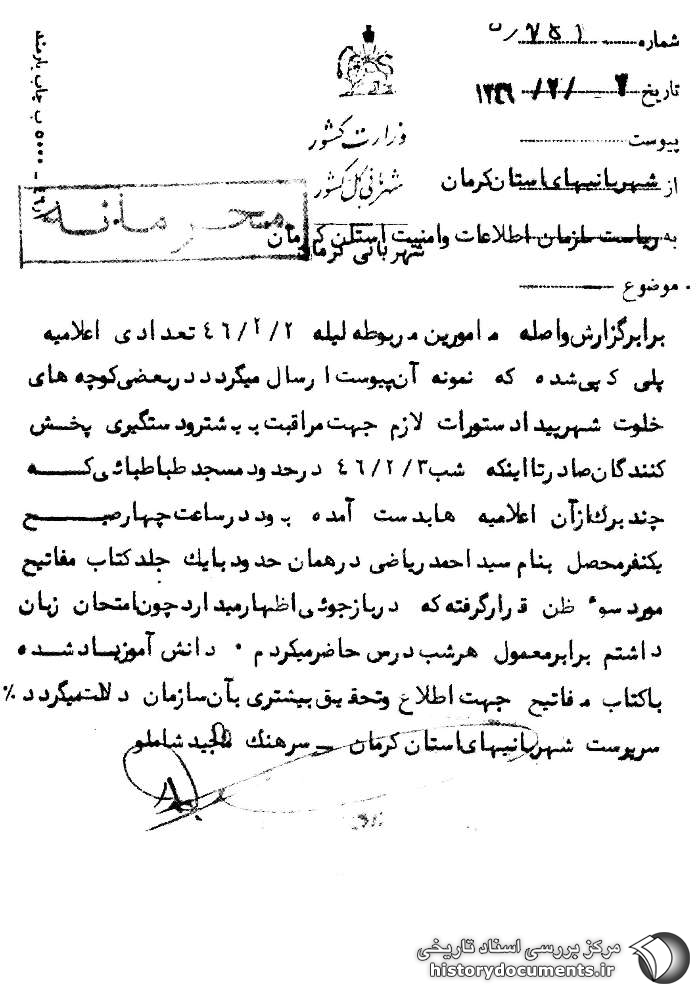 شماره ۵/۷۵۱
تاریخ ۳/۲/۱۳۴۶
پیوست
وزارت کشور
شهربانی کل کشور
از شهربانیهای استان کرمان
محرمانه
به ریاست سازمان اطلاعات وامنیت استان کرمان
شهربانی کرمان
موضوع
برابرگزارش واصله مامورین مربوطه لیله ۴۶/۲/۲ تعدادی اعلامیه
پلی کپی شده که نمونه آن پیوست ارسال میگردد دربعضی کوچه های
خلوت شهرپیدا دستورات لازم جهت مراقبت بیشترودستگیری پخش
کنندگان صادرتااینکه شب ۴۶/۲/۳ درحدود مسجد طباطبائی کــه
چندبرگ ازآن اعلامیه هابدست آمده بود درساعت چهارصبــح
یکنفرمحصل بنام سیداحمدریاضی درهمان حدودبایک جلدکتاب مفاتیح
مورد سوء ظن قرارگرفته که دربازجوئی اظهارمیداردچون امتحان زبان
داشتم برابرمعمول هرشب درس حاضرمیکردم . دانش آموزیاد شده
باکتاب مفاتیح جهت اطلاع وتحقیق بیشتری بآن سازمان دلالت میگردد ٪
سرپرست شهربانیهای استان کرمان – سرهنگ مجید شاملو
مرکز بررسی اسناد تاریخی
historydocuments.ir